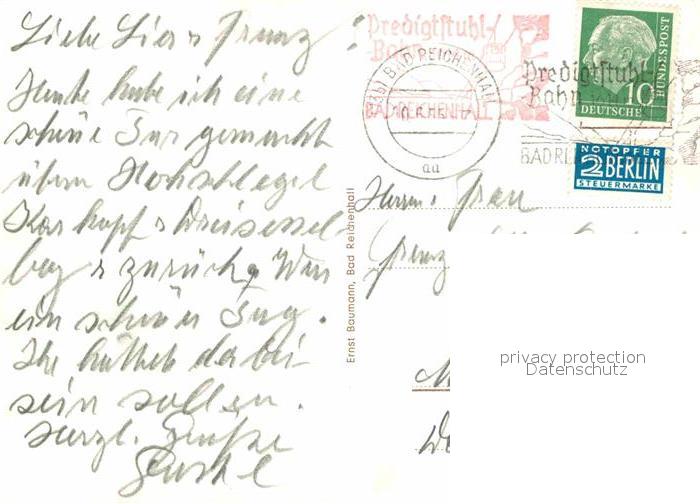 Liebe Lisa & Franz!
Heute habe ich eine
schöne Tur gemacht
übern Hochschlegel
Karkopf & Dreisessel
berg & zurück. War
ein schöner Tag.
Ihr hättet dabei
sein sollen.
Herzl. Grüße
Ernst Baumann, Bad Reichenhall
Predigtstuhl-
Bahn
BAD REICHENHALL
BAD REICHENHALL
aa
Predigtstuhl-
Bahn
BAD REI
BUNDESPOST
10
DEUTSCHE
NOTOPFER
2 BERLIN
STEUERMARKE
Herrn & Frau
privacy protection
Datenschutz